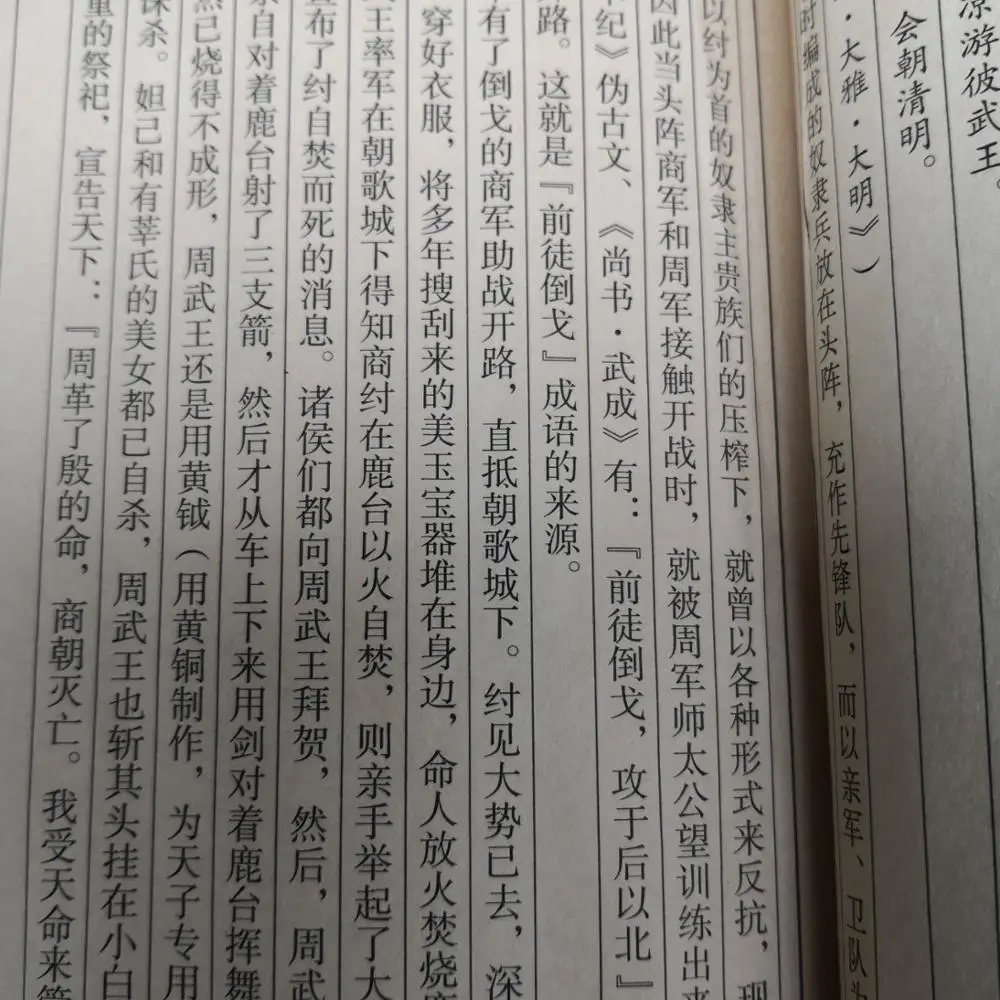 凉游彼武王。
会朝清明。
·大雅·大明》）
时编成的奴隶兵放在头阵，充作先锋队，而以亲军、卫队为
以纣为首的奴隶主贵族们的压榨下，就曾以各种形式来反抗，现
因此当头阵商军和周军接触开战时，就被周军师太公望训练出来
本纪》伪古文、《尚书·武成》有：『前徒倒戈，攻于后以北』
路。这就是『前徒倒戈』成语的来源。
有了倒戈的商军助战开路，直抵朝歌城下。纣见大势已去，深
穿好衣服，将多年搜刮来的美玉宝器堆在身边，命人放火焚烧
王率军在朝歌城下得知商纣在鹿台以火自焚，则亲手举起了大
宣布了纣自焚而死的消息。诸侯们都向周武王拜贺，然后，周武
亲自对着鹿台射了三支箭，然后才从车上下来用剑对着鹿台挥舞
然己烧得不成形，周武王还是用黄钺（用黄铜制作，为天子专用
诛杀。妲己和有莘氏的美女都已自杀，周武王也斩其头挂在小白
重的祭祀，宣告天下：『周革了殷的命，商朝灭亡。我受天命来管